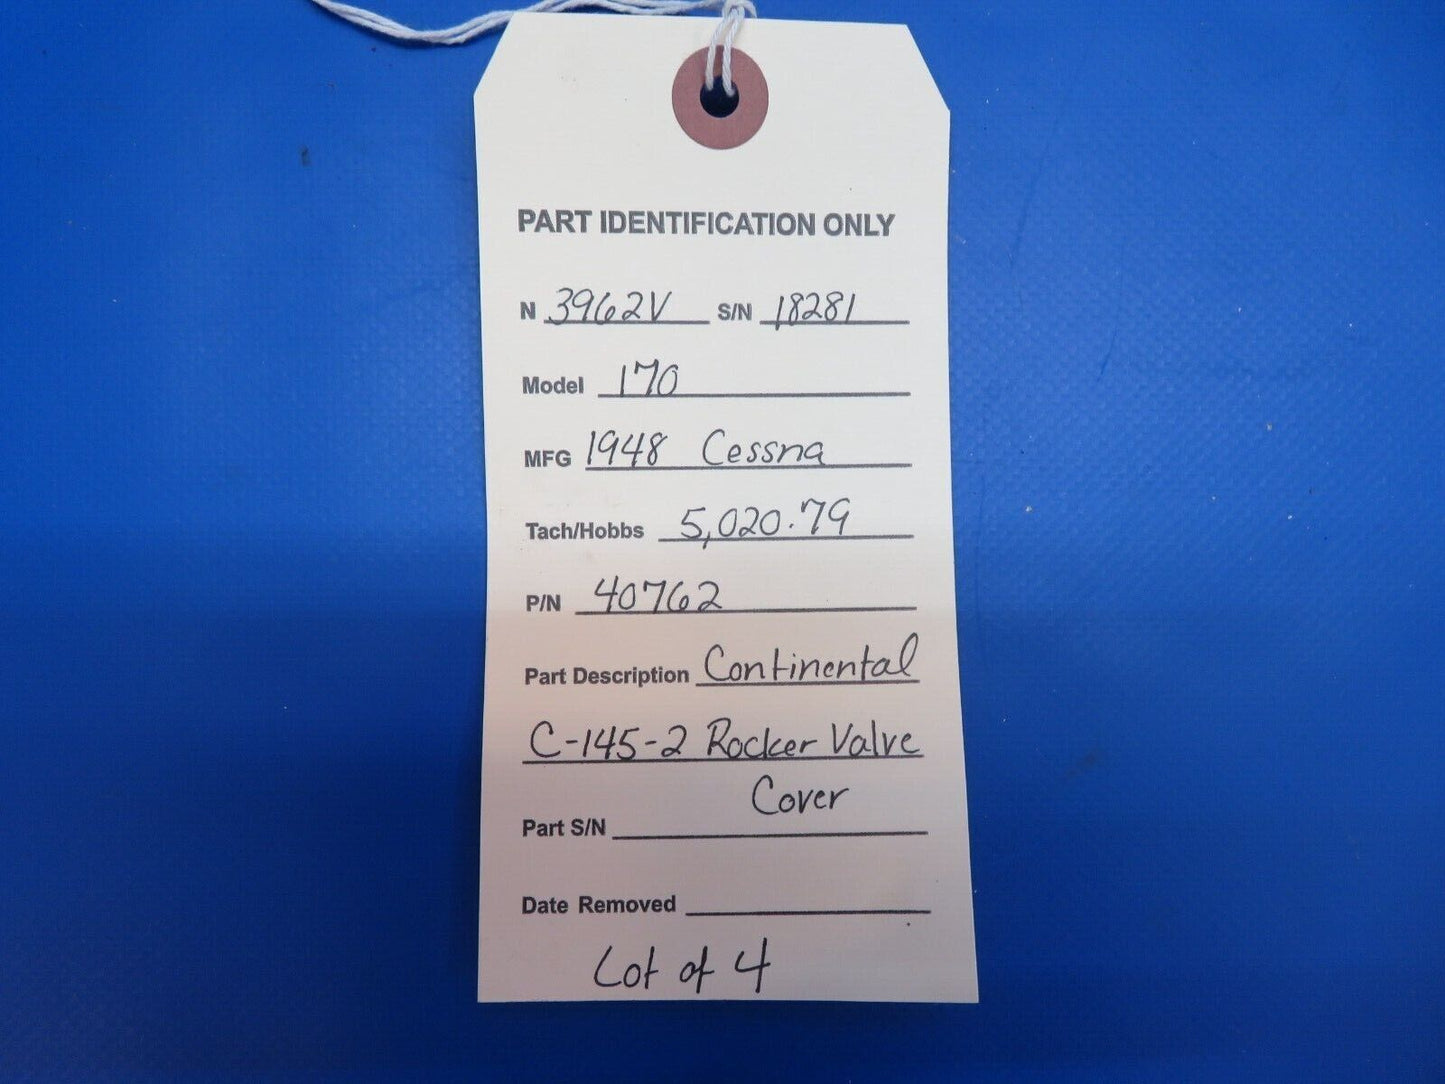 PART IDENTIFICATION ONLY
N 3962V S/N 18281
Model 170
MFG 1948 Cessna
Tach/Hobbs 5,020.79
P/N 40762
Part Description Continental
C-145-2 Rocker Valve
Cover
Part S/N
Date Removed
Lot of 4